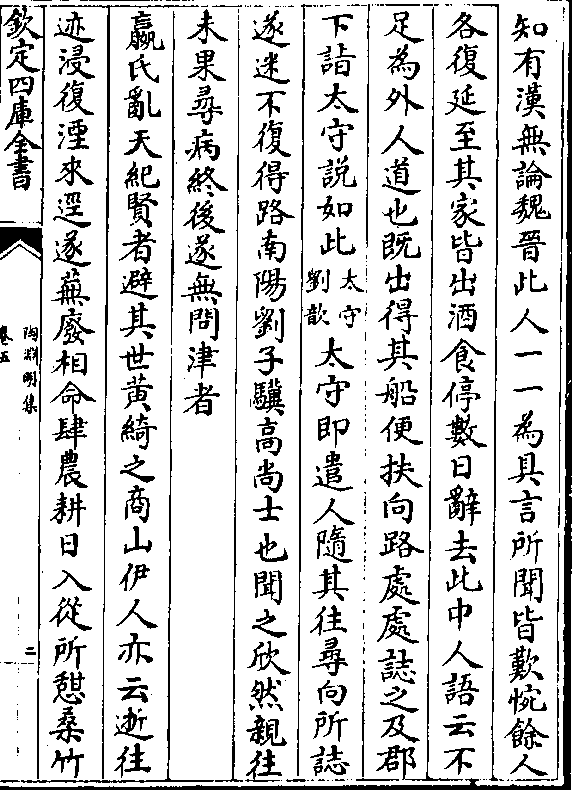 知有漢無論魏晉此人一一為具言所聞皆歎惋餘人
各復延至其家皆出酒食停數日辭去此中人語云不
足為外人道也既出得其船便扶向路處處誌之及郡
下詣太守説如此太守劉歆太守即遣人隨其往尋向所誌
遂迷不復得路南陽劉子驥高尚士也聞之欣然親往
未果尋病終後遂無問津者
嬴氏亂天紀賢者避其世黄綺之商山伊人亦云逝往
迹浸復湮來逕遂蕪廢相命肆農耕日入從所憇桑竹
欽定四庫全書
陶淵明集
卷五
二